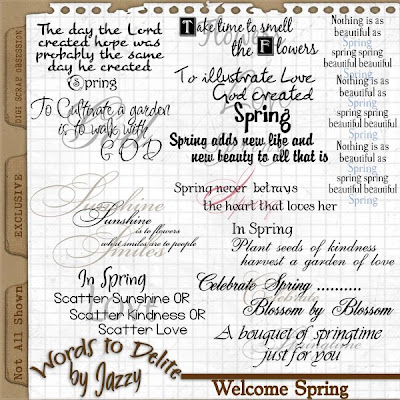 DIGI SCRAP OBSESSION
EXCLUSIVE
Not All Shown
The day the Lord
created hope was
probably the same
day he created
Spring
To Cultivate a garden
is to walk with
GOD
Sunshine
Sunshine
is to flowers
what smiles are to people
Smiles
In Spring
Scatter Sunshine OR
Scatter Kindness OR
Scatter Love
Take time to smell
the Flowers
To illustrate Love
God created
Spring
Spring adds new life and
new beauty to all that is
Spring never betrays
the heart that loves her
In Spring
Plant seeds of kindness
harvest a garden of love
Celebrate Spring ..........
Celebrate
Blossom by Blossom
A bouquet of springtime
just for you
springtime
Nothing is as
beautiful as
Spring
spring spring
beautiful beautiful
Nothing is as
beautiful as
Spring
spring spring
beautiful beautiful
Nothing is as
beautiful as
Spring
spring spring
beautiful beautiful
Words to Delite
by Jazzy
Welcome Spring